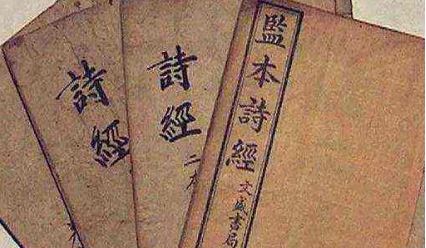 監本詩經
文盛書局
詩經
二本
詩經